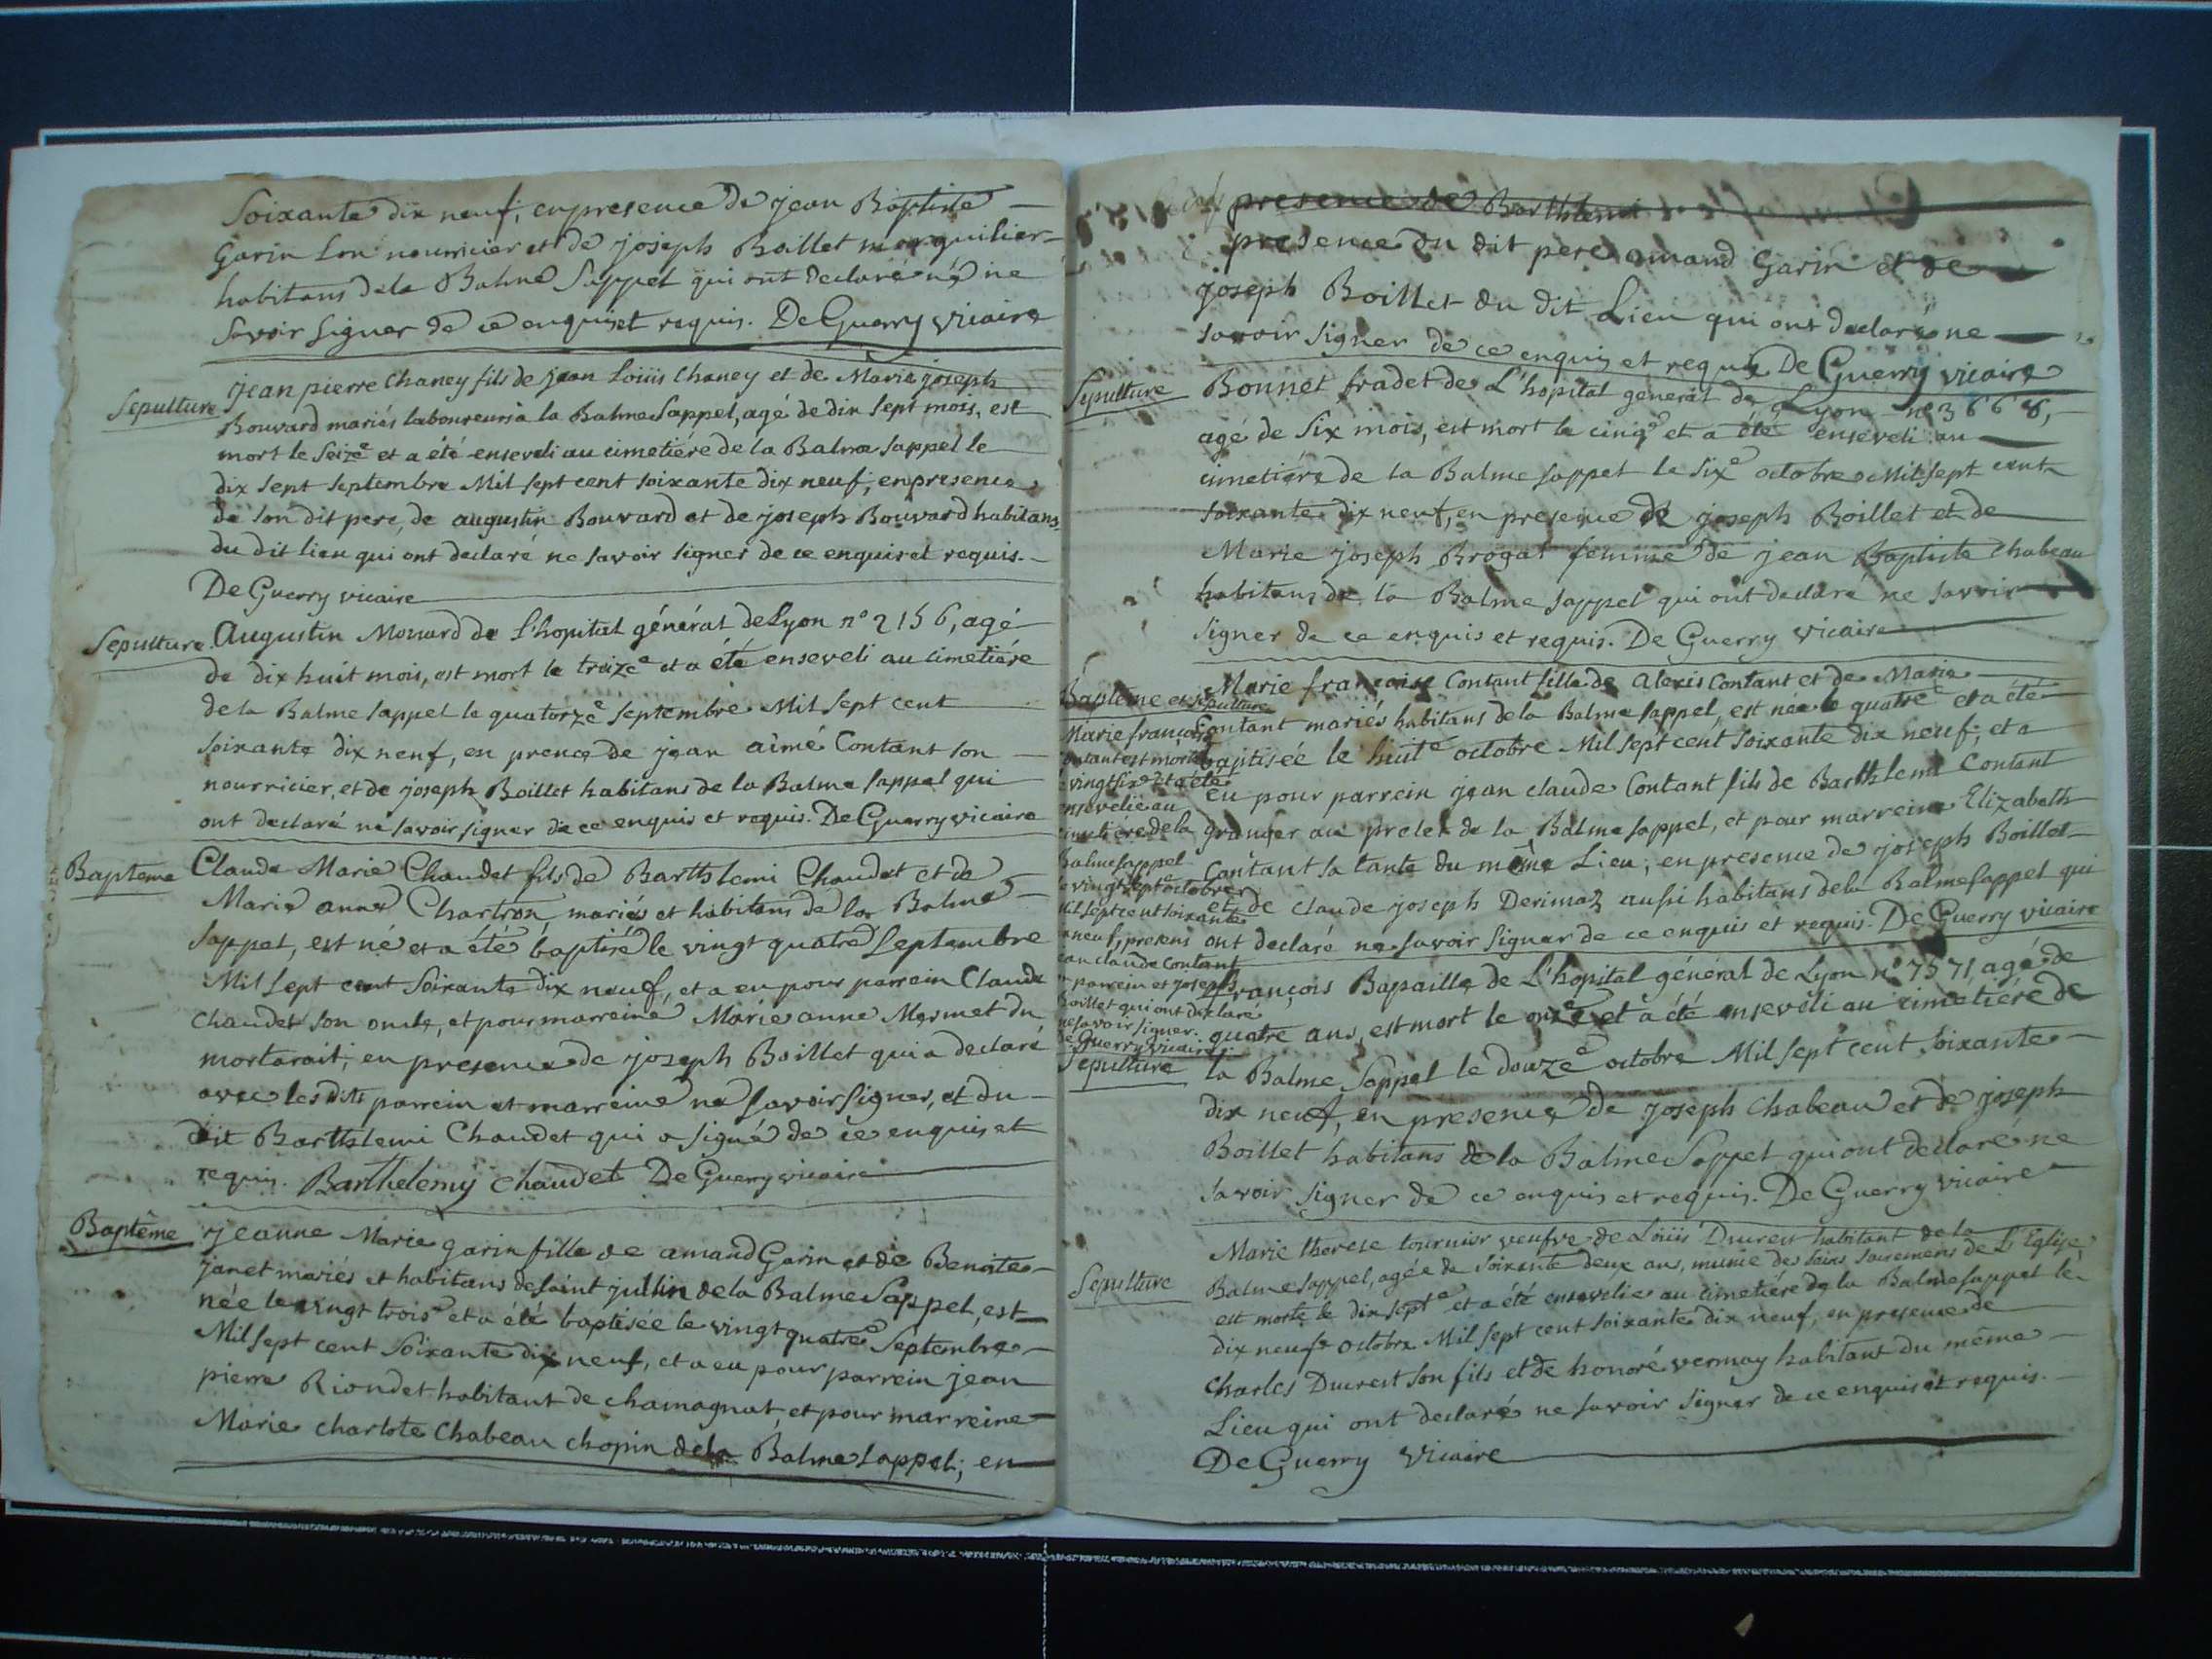 Soixante dix neuf, en presence de jean Baptiste
Garin son nourricier et de joseph Boillet marguilier
habitans de la Balme Sappel qui ont declaré ne
savoir signer de ce enquis et requis. De Guerry vicaire
Sepulture
jean pierre Chaney fils de jean Loüis Chaney et de Marie joseph
Bouvard mariés laboureurs a la Balme Sappel, agé de dix sept mois, est
mort le Seize et a été enseveli au cimetiére de la Balme sappel le
dix sept septembre Mil sept cent soixante dix neuf, en presence
de son dit pere, de augustin Bouvard et de joseph Bouvard habitans
du dit lieu qui ont declaré ne savoir signer de ce enquis et requis.
De Guerry vicaire
Sepulture
Augustin Monard de L'hopital général de Lyon n° 2156, agé
de dix huit mois, est mort le treize et a été enseveli au cimetiére
de la Balme sappel le quatorze septembre Mil sept cent
soixante dix neuf, en prence de jean aimé Contant son
nourricier, et de joseph Boillet habitans de la Balme sappel qui
ont declaré ne savoir signer de ce enquis et requis. De Guerry vicaire
Bapteme
Claude Marie Chaudet fils de Barthlemi Chaudet et de
Marie anne Chartron mariés et habitans de la Balme
sappel, est né et a été baptisé le vingt quatre Septembre
Mil sept cent Soixante dix neuf, et a eu pour parrein Claude
chaudet son oncle, et pour marreine Marie anne Mermet du
mortarait; en presence de joseph Boillet qui a declaré
avec les dits parrein et marreine ne savoir signer, et du
dit Barthlemi Chaudet qui a signé de ce enquis et
requis. Barthelemy chaudet De Guerry vicaire
Baptême
jeanne Marie garin fille de amand Garin et de Benoite
janet mariés et habitans de saint jullin de la Balme Sappel, est
née le vingt trois et a été baptisée le vingt quatre Septembre
Mil sept cent Soixante dix neuf, et a eu pour parrein jean
pierre Riondet habitant de chamagnat, et pour marreine
Marie charlote Chabeau chopin de la Balme sappel; en
presence de Barthlemi
presence du dit pere amand Garin et de
joseph Boillet du dit Lieu qui ont declaré ne
savoir signer de ce enquis et requis De Guerry vicaire
Sepulture
Bonnet fradet de L'hopital general de Lyon n°
agé de six mois, est mort le cinq et a été enseveli au
cimetiére de la Balme sappel le six octobre Mil sept cent
soixante dix neuf, en presence de joseph Boillet et de
Marie joseph Brogat femme de jean Baptiste chabeau
habitans de la Balme sappel qui ont declaré ne savoir
signer de ce enquis et requis. De Guerry vicaire
Baptême et sepulture
Marie françoise Contant fille de alexis Contant et de Marie
Contant mariés habitans de la Balme sappel, est née le quatre et a été
baptisée le huit octobre Mil sept cent soixante dix neuf, et a
eu pour parrein jean claude Contant fils de Barthlemi Contant
granger au prelet de la Balme sappel, et pour marreine Elizabeth
Contant sa tante du même Lieu; en presence de joseph Boillet
et de claude joseph Derimaz aussi habitans de la Balme sappel qui
ont declaré ne savoir signer de ce enquis et requis. De Guerry vicaire
Marie françoise
contant est morte
le vingt six et a été
ensevelie au
cimetiére de la
Balme sappel
le vingt sept octobre
Mil sept cent soixante
neuf, presens
jean claude Contant
parrein et joseph
Boillet qui ont declaré
ne savoir signer.
De Guerry vicaire
Sepulture
françois Bapaille de L'hopital général de Lyon n° 7571, agé de
quatre ans, est mort le onze et a été enseveli au cimetiére de
la Balme sappel le douze octobre Mil sept cent soixante
dix neuf, en presence de joseph Chabeau et de joseph
Boillet habitans de la Balme Sappel qui ont declaré ne
savoir signer de ce enquis et requis. De Guerry vicaire
Sepulture
Marie therese tournier veufve de Loüis Ducrest habitant de la
Balme sappel, agée de soixante deux ans, munie des sacremens de L'Eglise,
est morte le dix sept et a été ensevelie au cimetiére de la Balme sappel le
dix neuf octobre Mil sept cent soixante dix neuf, en presence de
Charles Ducrest son fils et de honoré vermay habitans du même
Lieu qui ont declaré ne savoir signer de ce enquis et requis.
De Guerry vicaire